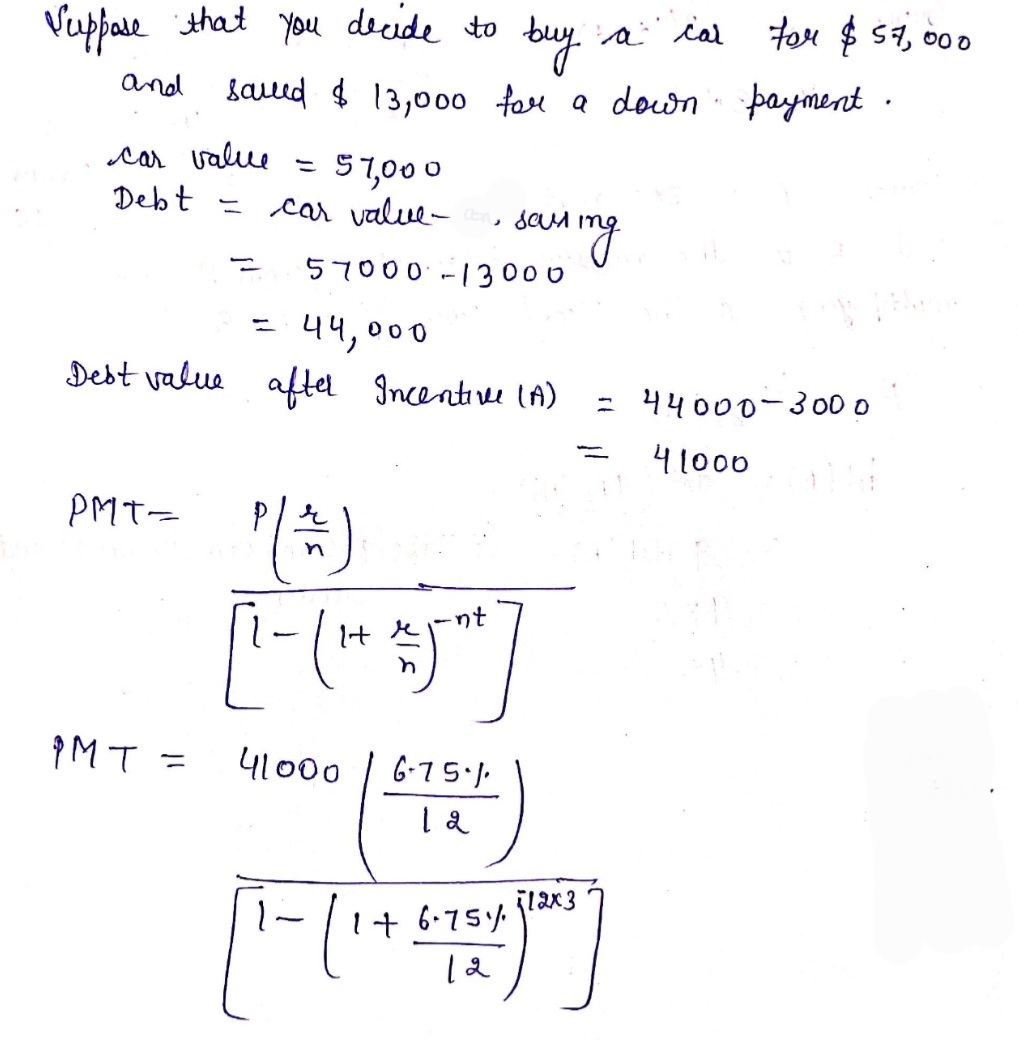 Suppose that you decide to buy a car for $ 57,000
and saved $ 13,000 for a down payment.
car value = 57,000
Debt = car value - saving
= 57000 - 13000
= 44,000
Debt value after Incentive (A) = 44000 - 3000
= 41000
PMT = P(r/n)
[1 - (1 + r/n)^-nt]
PMT = 41000 (6.75% / 12)
[1 - (1 + 6.75% / 12)^-12x3]